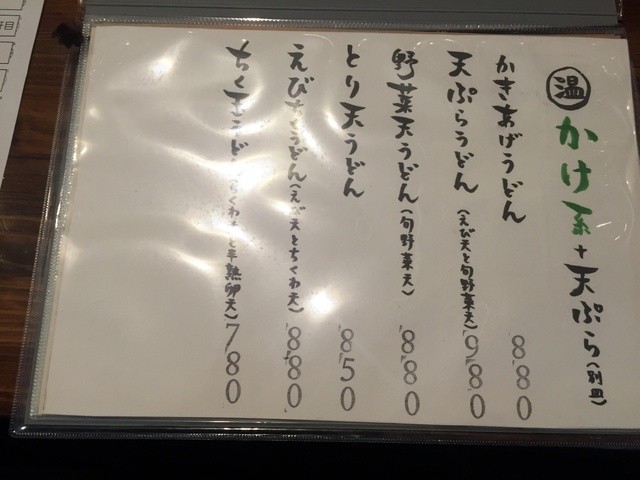 温 かけ系+天ぷら(別皿)
かきあげうどん 880
天ぷらうどん(えび天と旬野菜天) 980
野菜天うどん(旬野菜天) 880
とり天うどん 850
えびちくうどん(えび天とちくわ天) 880
ちく玉うどん(ちくわ天と半熟卵天) 780